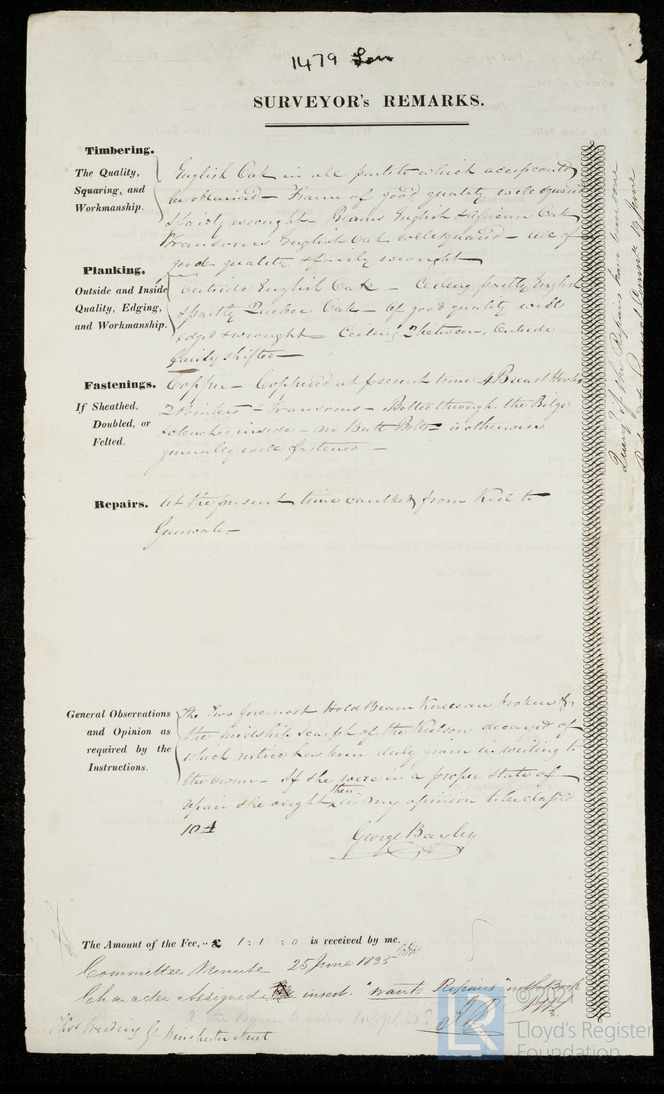 1479 Lon
SURVEYOR's REMARKS.
Timbering.
The Quality, Squaring, and Workmanship.
English Oak in all parts to which access could
be obtained — Frame of good quality well squared
& fairly wrought — Beams English & African Oak
Transoms English Oak well squared — all of
good quality & fairly wrought
Planking.
Outside and Inside Quality, Edging, and Workmanship.
Outside English Oak — Ceiling partly English
& partly Quebec Oak — Of good quality well
edged & wrought — Ceiling Outside
fairly shifted —
Fastenings.
If Sheathed, Doubled, or Felted.
Copper — Coppered at present time 4 Breast Hooks
2 Pointers & transoms — Bolted through the Bilge
& clenched inside — no Butt Bolts — is otherwise
generally well fastened —
Repairs.
At the present time caulked from Keel to
Gunwale —
General Observations and Opinion as required by the Instructions.
The two foremost Hold Beam Knees are broken &
the midship scarph of the Keelson decayed of
which notice has been duly given in writing to
the owner — If she were in a proper state of
repair she ought then in my opinion to be classed
10 A
George Bayley
The Amount of the Fee, £ 1 : 1 : 0 is received by me.
Committee Minute 25 June 1835
Character Assigned insert "wants Repairs" in the Book
? the supplied?
Winchester Street
Query if the Repairs have been done
© 2021
Lloyd's Register
Foundation
LR